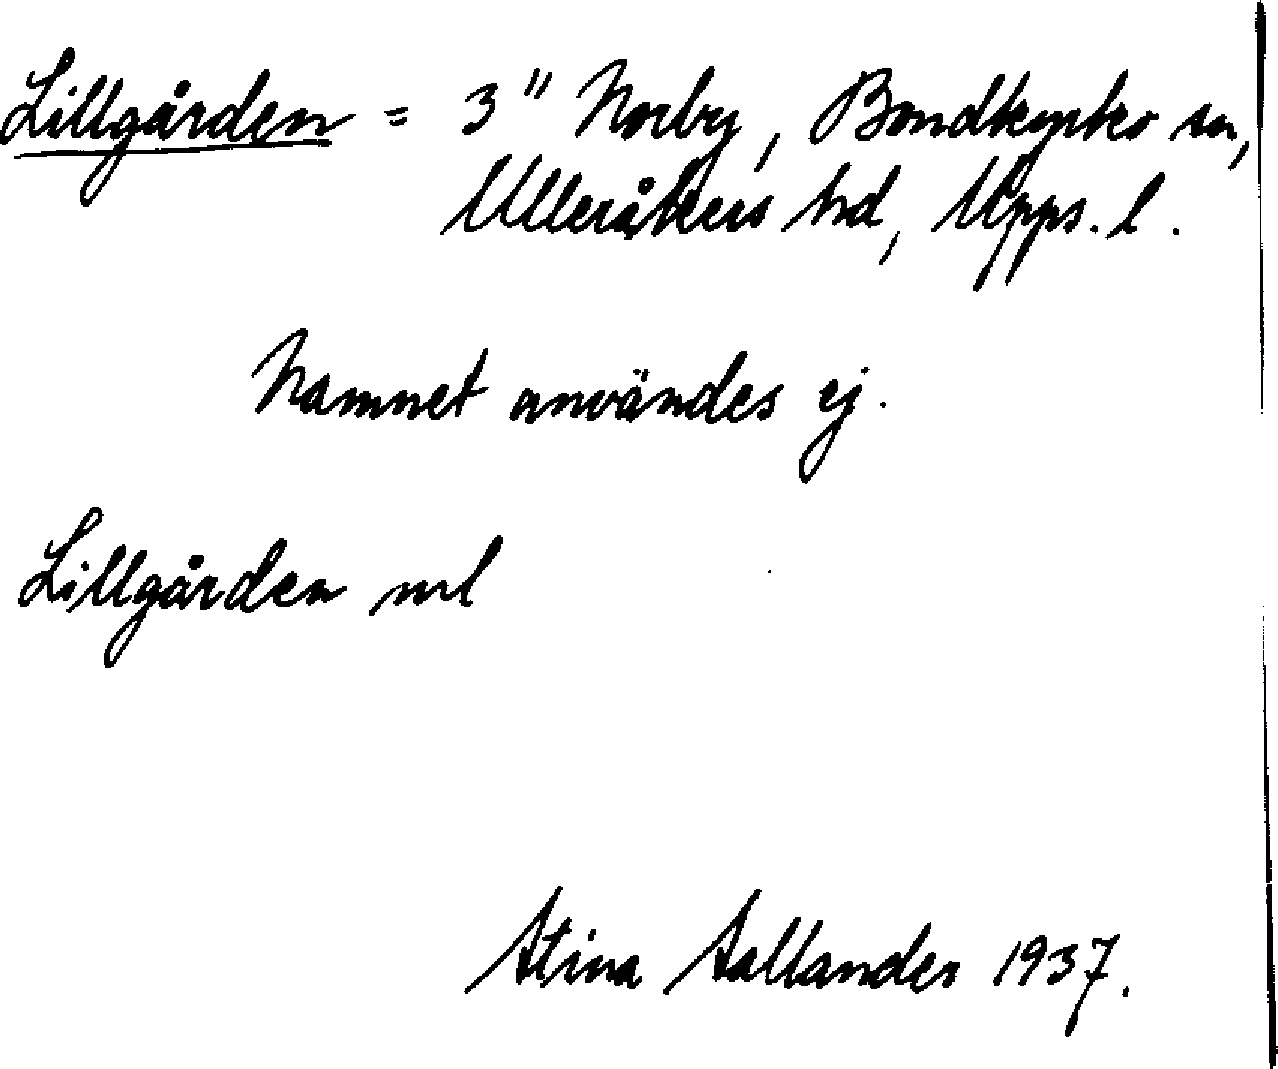 Lillgården = 3" Norby, Bondkyrko sn,
Ulleråkers hd, Upps. l.
Namnet användes ej.
Lillgården ml
Stina Sallander 1937.